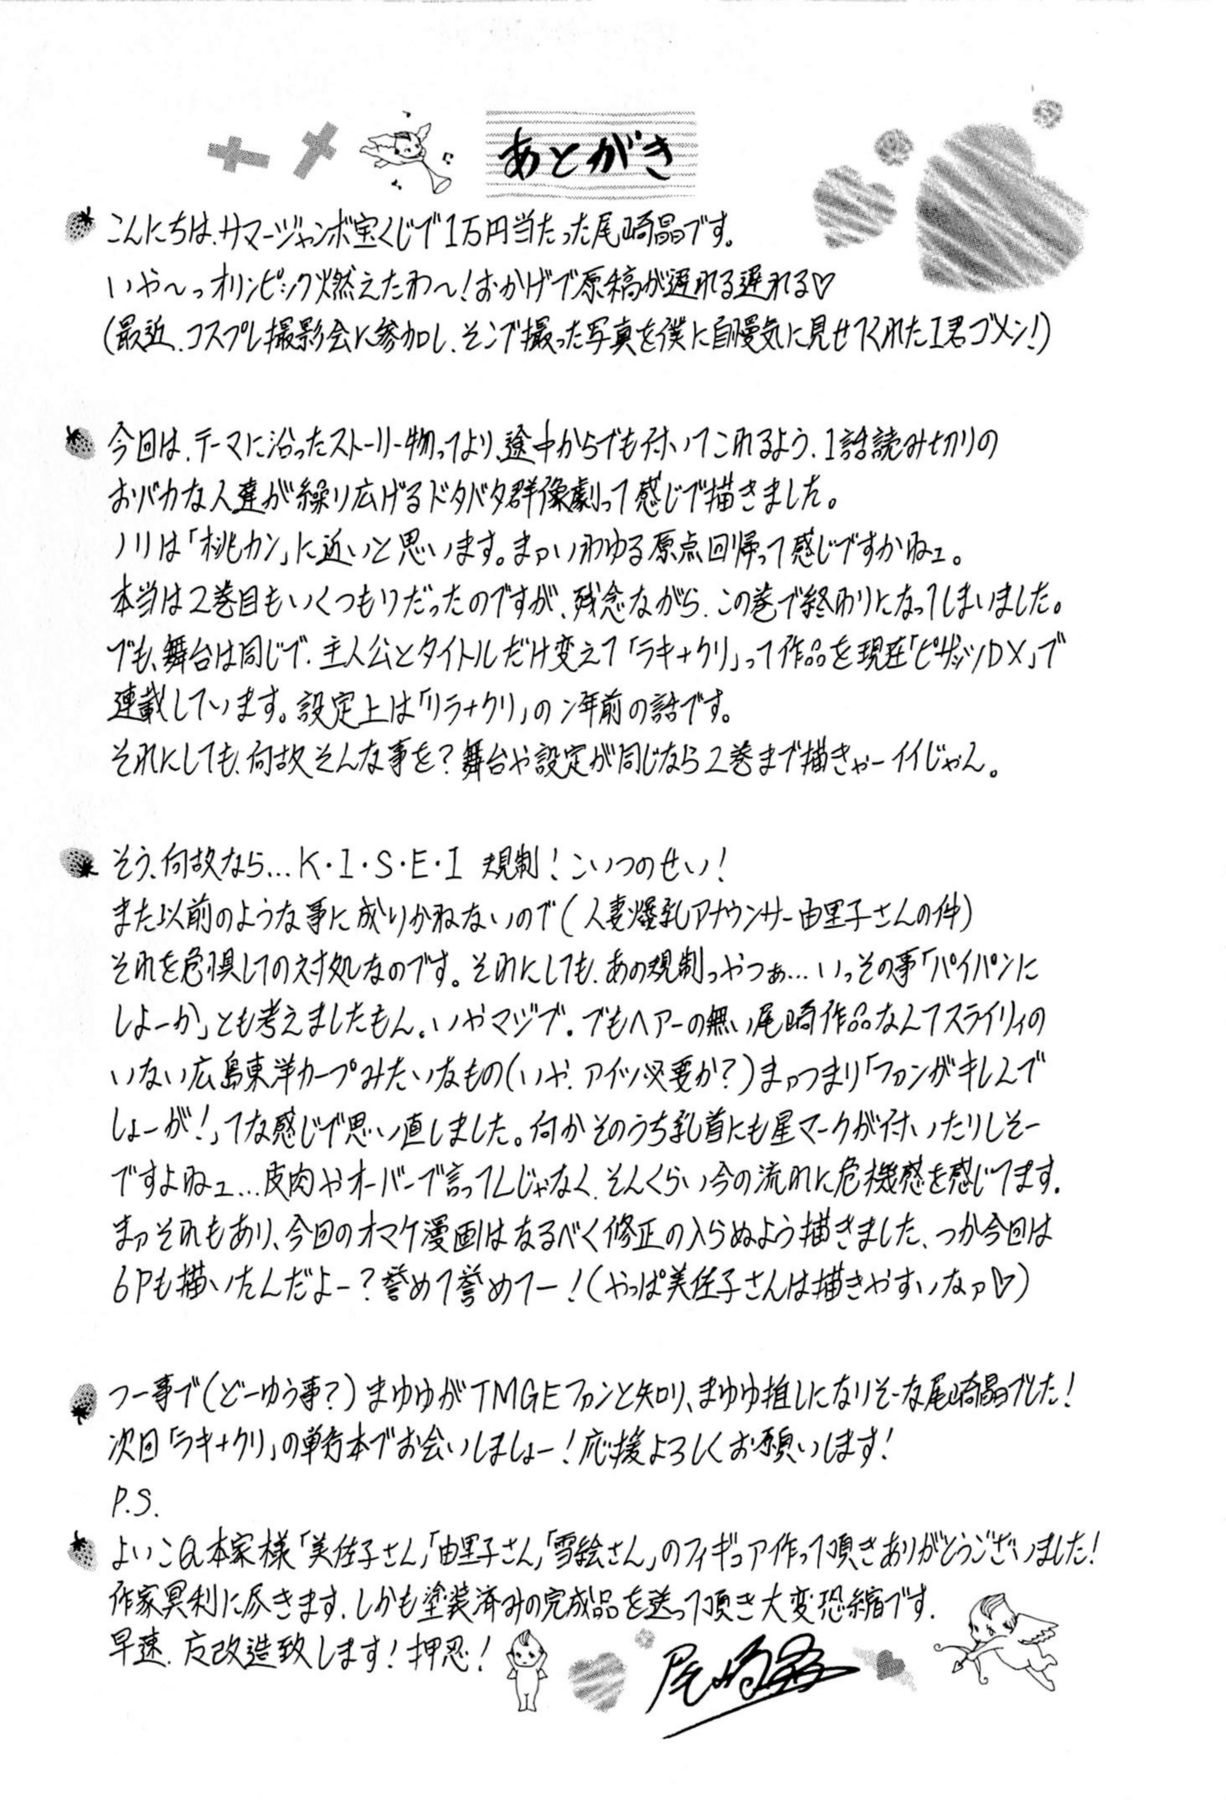 あとがき
こんにちは、サマージャンボ宝くじで1万円当たった尾崎晶です。
いや〜っオリンピック燃えたわ〜!おかげで原稿が遅れる遅れる♡
(最近、コスプレ撮影会に参加し、そこで撮った写真を僕に自慢気に見せてくれたI君ゴメン!)
今回は、テーマに沿ったストーリー物ってより、途中からでも付いてこれるよう、1話読み切りの
おバカな人達が繰り広げるドタバタ群像劇って感じで描きました。
ノリは「桃カン」に近いと思います。まァいわゆる原点回帰って感じですかねェ。
本当は2巻目もいくつもりだったのですが、残念ながら、この巻で終わりになってしまいました。
でも、舞台は同じで、主人公とタイトルだけ変えて「ラキ+クリ」って作品を現在「ピザッツDX」で
連載しています。設定上は「リラ+クリ」の2年前の話です。
それにしても、何故そんな事を?舞台や設定が同じなら2巻まで描きゃーイイじゃん。
そう、何故なら…K・I・S・E・I 規制!こいつのせい!
また以前のような事に成りかねないので(人妻爆乳アナウンサー由里子さんの件)
それを危惧しての対処なのです。それにしても、あの規制っやつぁ…いっその事「パイパンに
しよーか」とも考えましたもん。いやマジで。でもヘアーの無い尾崎作品なんてスライリィの
いない広島東洋カープみたいなもの(いや、アイツ必要か?)まァつまり「ファンがキレんで
しょーが!」てな感じで思い直しました。何かそのうち乳首にも星マークが付いたりしそー
ですよねェ…皮肉やオーバーで言ってんじゃなく、そんくらい今の流れに危機感を感じてます。
まァそれもあり、今回のオマケ漫画はなるべく修正の入らぬよう描きました、つか今回は
6Pも描いたんだよー?誉めて誉めてー!(やっぱ美佐子さんは描きやすいなァ♡)
つー事で(どーゆう事?)まゆゆがTMGEファンと知り、まゆゆ推しになりそーな尾崎晶でした!
次回「ラキ+クリ」の単行本でお会いしましょー!応援よろしくお願いします!
P.S.
よいこ@本家様「美佐子さん」「由里子さん」「雪絵さん」のフィギュア作って頂きありがとうございました!
作家冥利に尽きます、しかも塗装済みの完成品を送って頂き大変恐縮です。
早速、友改造致します!押忍!
尾崎晶